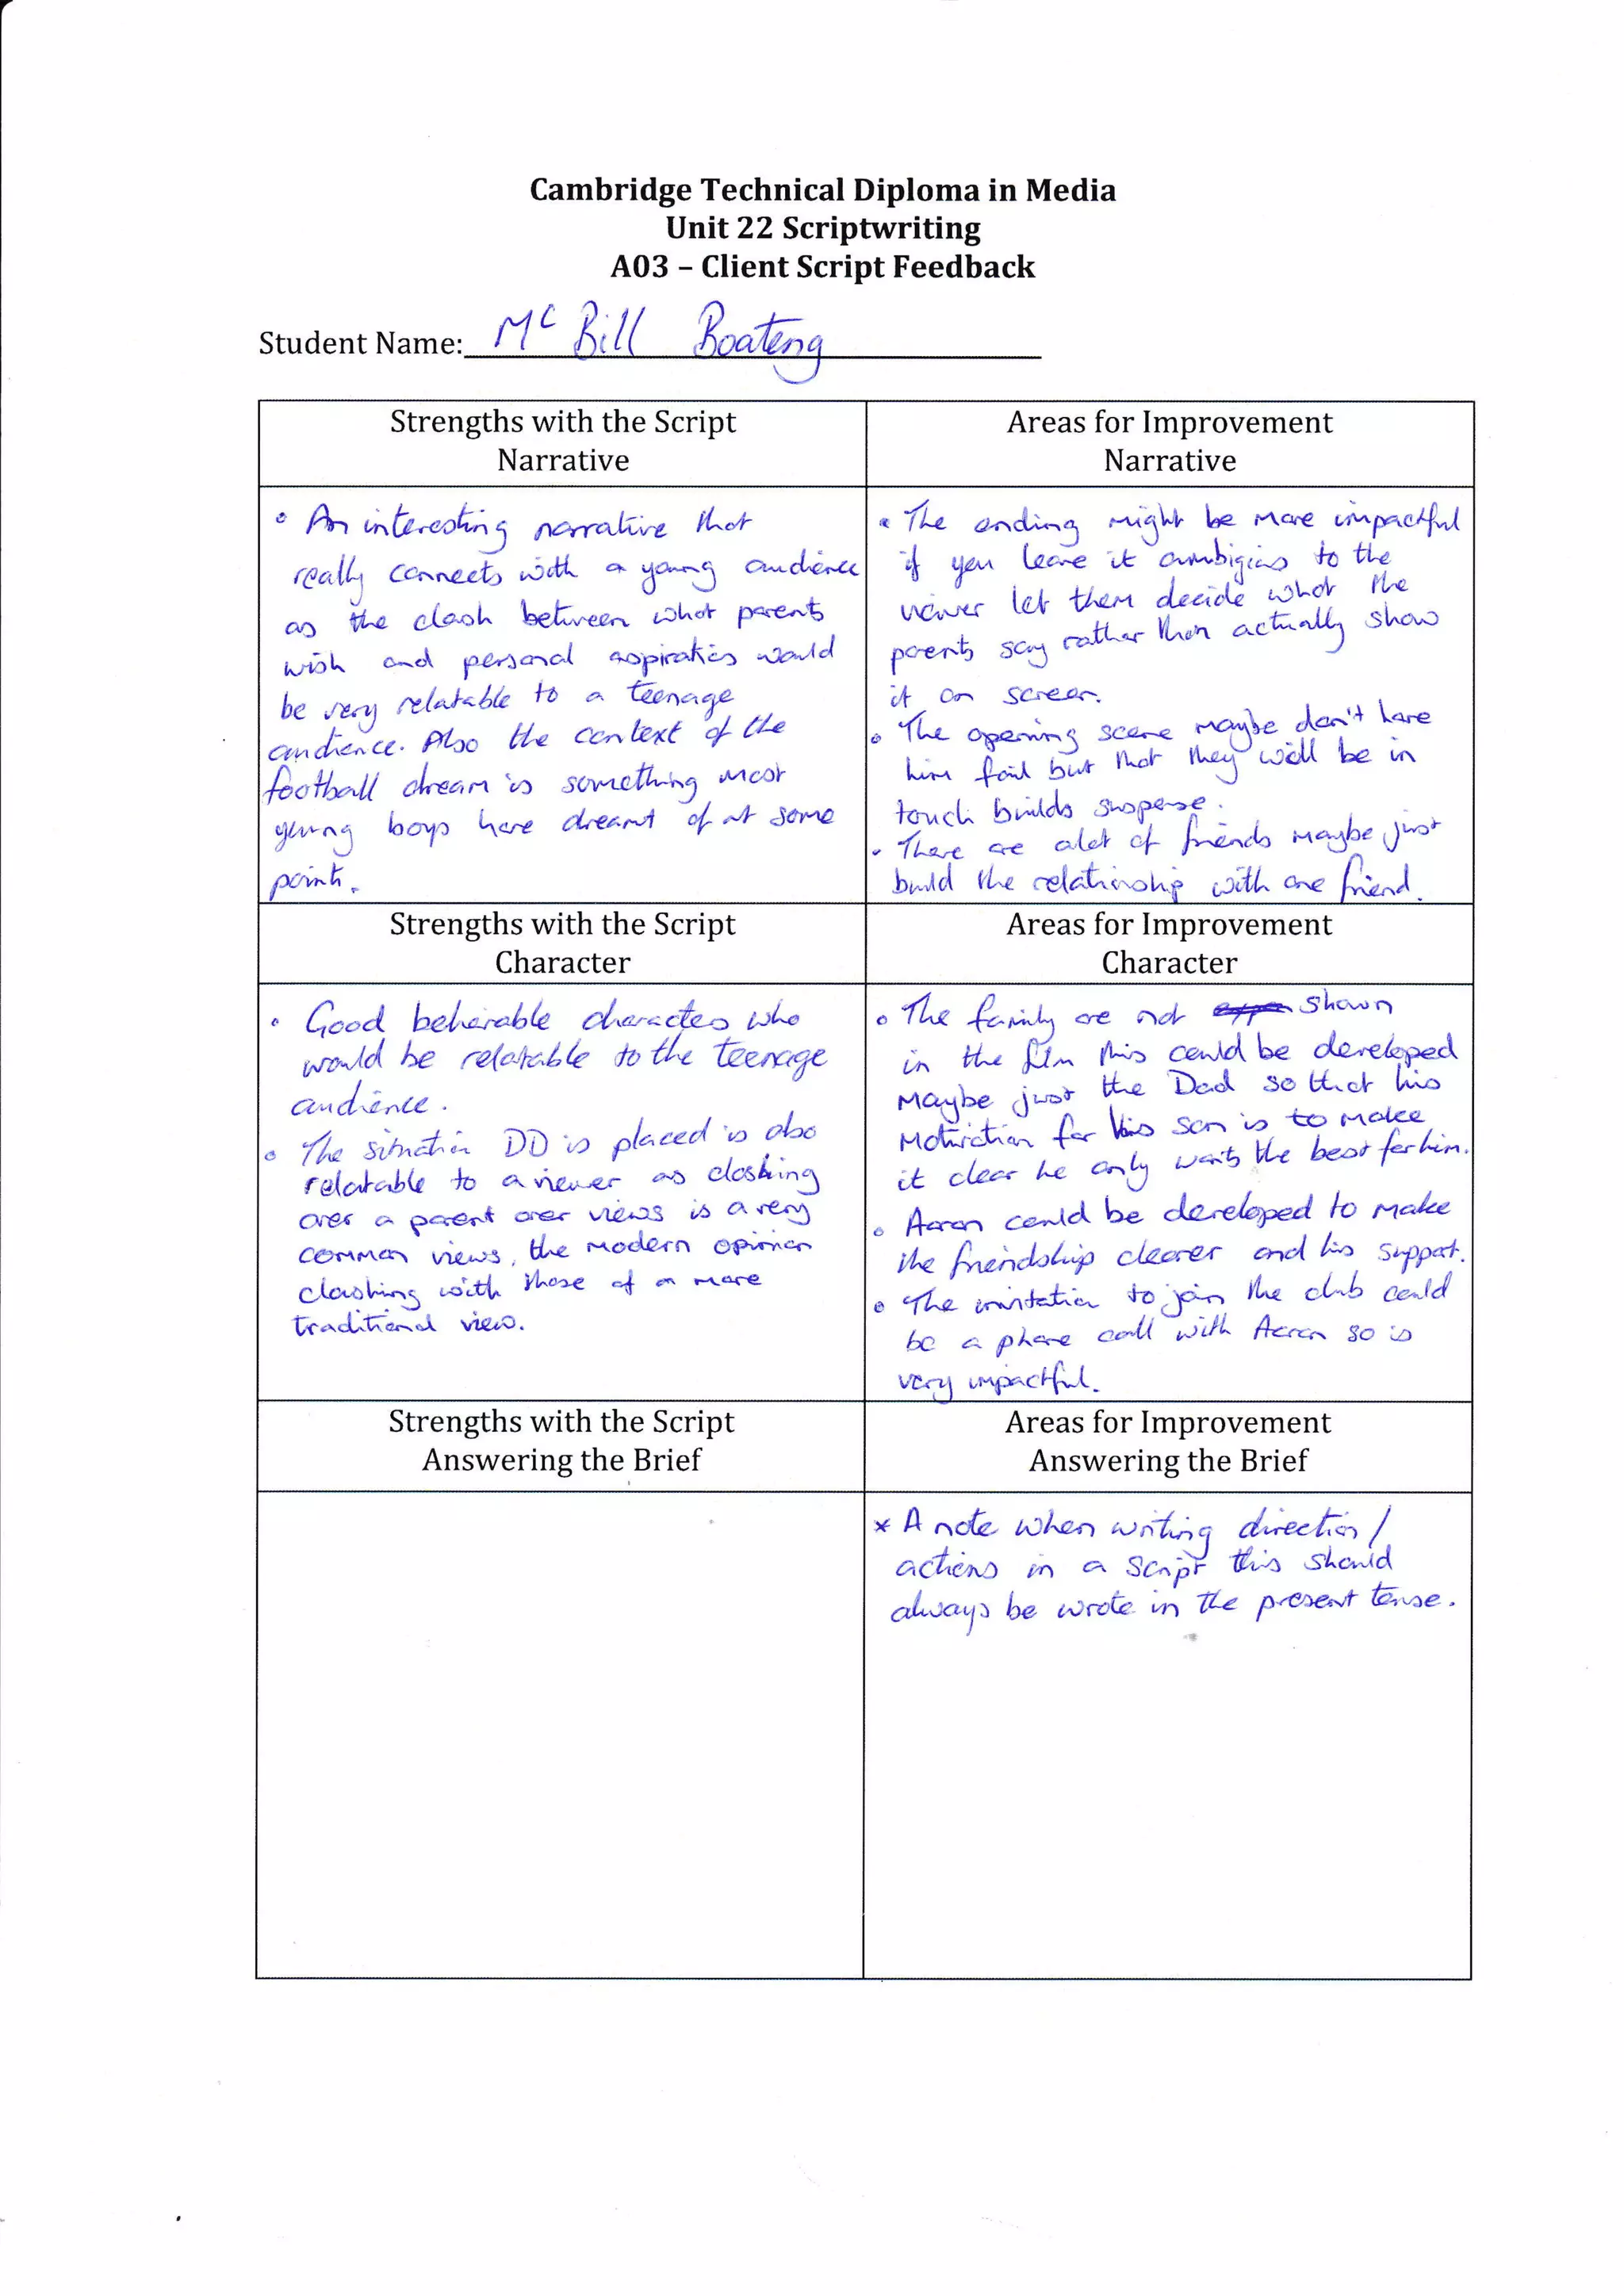 Cambridge Technical Diploma in Media
Unit 22 Scriptwriting
A03 – Client Script Feedback
Student Name: Mc Bill Boateng
Strengths with the Script
Narrative
• An interesting narrative that
really connects with a young audience
as the clash between what parents
wish and personal aspiratios would
be very relatable to a teenage
audience. Also the context of the
football dream is something most
young boys have dreamt of at some
point.
Areas for Improvement
Narrative
• The ending might be more impactful
if you leave it ambigios to the
viewer let them decide what the
parents say rather then actually show
it on screen.
• The opening scene maybe don't have
him fail but that they will be in
touch builds suspense.
• There are alot of friends maybe just
build the relationship with one friend.
Strengths with the Script
Character
• Good beleivable characters who
would be relatable to the teenage
audience.
• The situation DD is placed is also
relatable to a viewer as clashing
over a parent over views is a very
common views, the modern opinion
clashing with those of a more
traditional view.
Areas for Improvement
Character
• The family are not shown
in the film this could be developed
Maybe just the Dad so that his
Motivation for his son is to make
it clear he only wants the best for him.
• Aaron could be developed to make
the friendship clearer and his support.
• The invitation to join the club could
be a phone call with Aaron so is
very impactful.
Strengths with the Script
Answering the Brief
Areas for Improvement
Answering the Brief
* A note when writing direction /
actions in a script this should
always be wrote in the present tense.